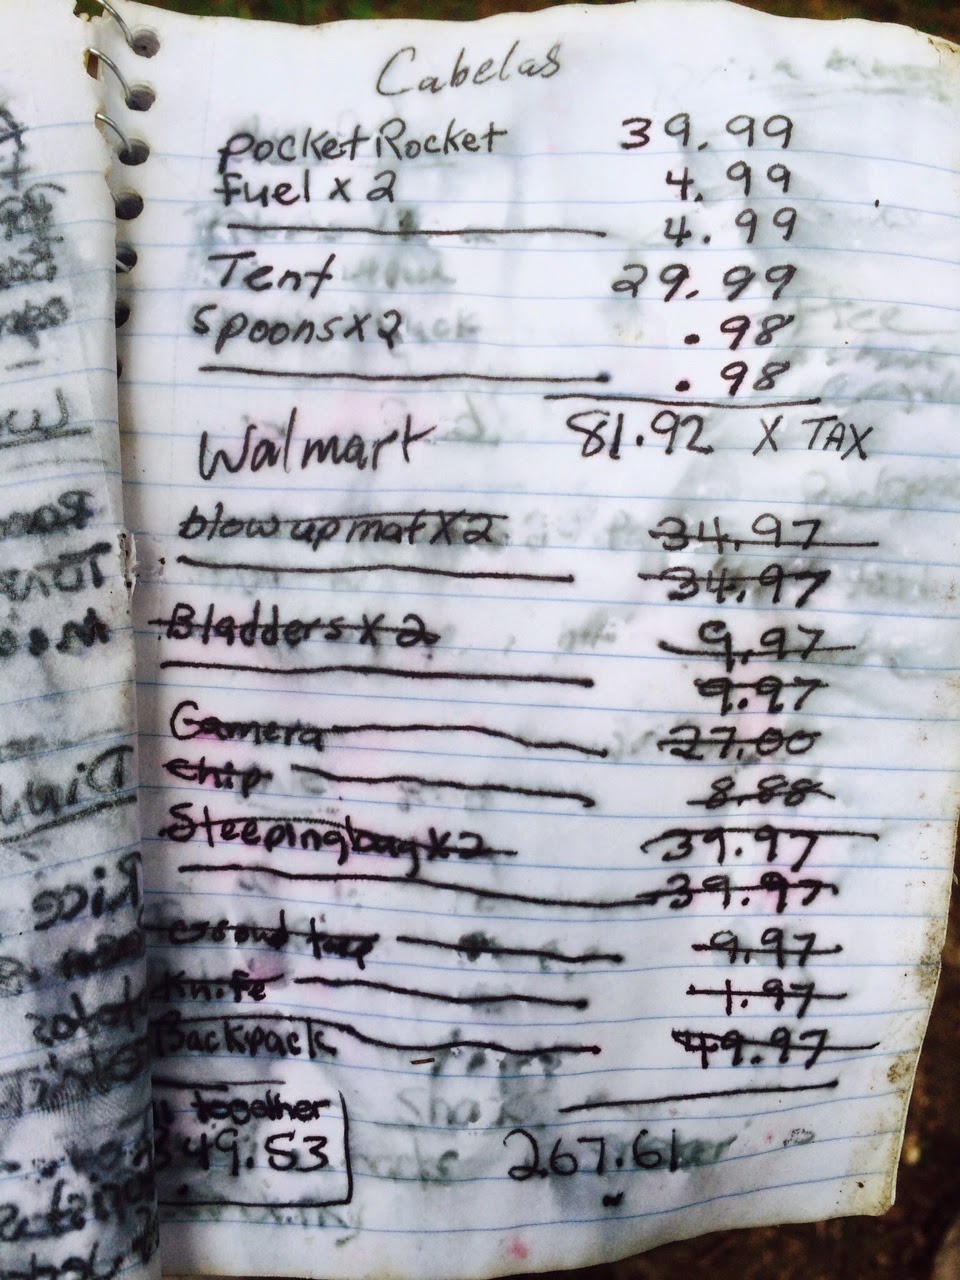 Cabelas
pocket Rocket 39.99
fuel x 2 4.99
4.99
Tent 29.99
Spoons x 2 .98
.98
81.92 X TAX
Walmart
blow up mat X 2 34.97
34.97
Bladders X 2 9.97
9.97
Camera 27.00
chip 8.88
Sleepingbag X 2 39.97
39.97
9.97
Knife 1.97
Backpack 49.97
together
49.53 267.61